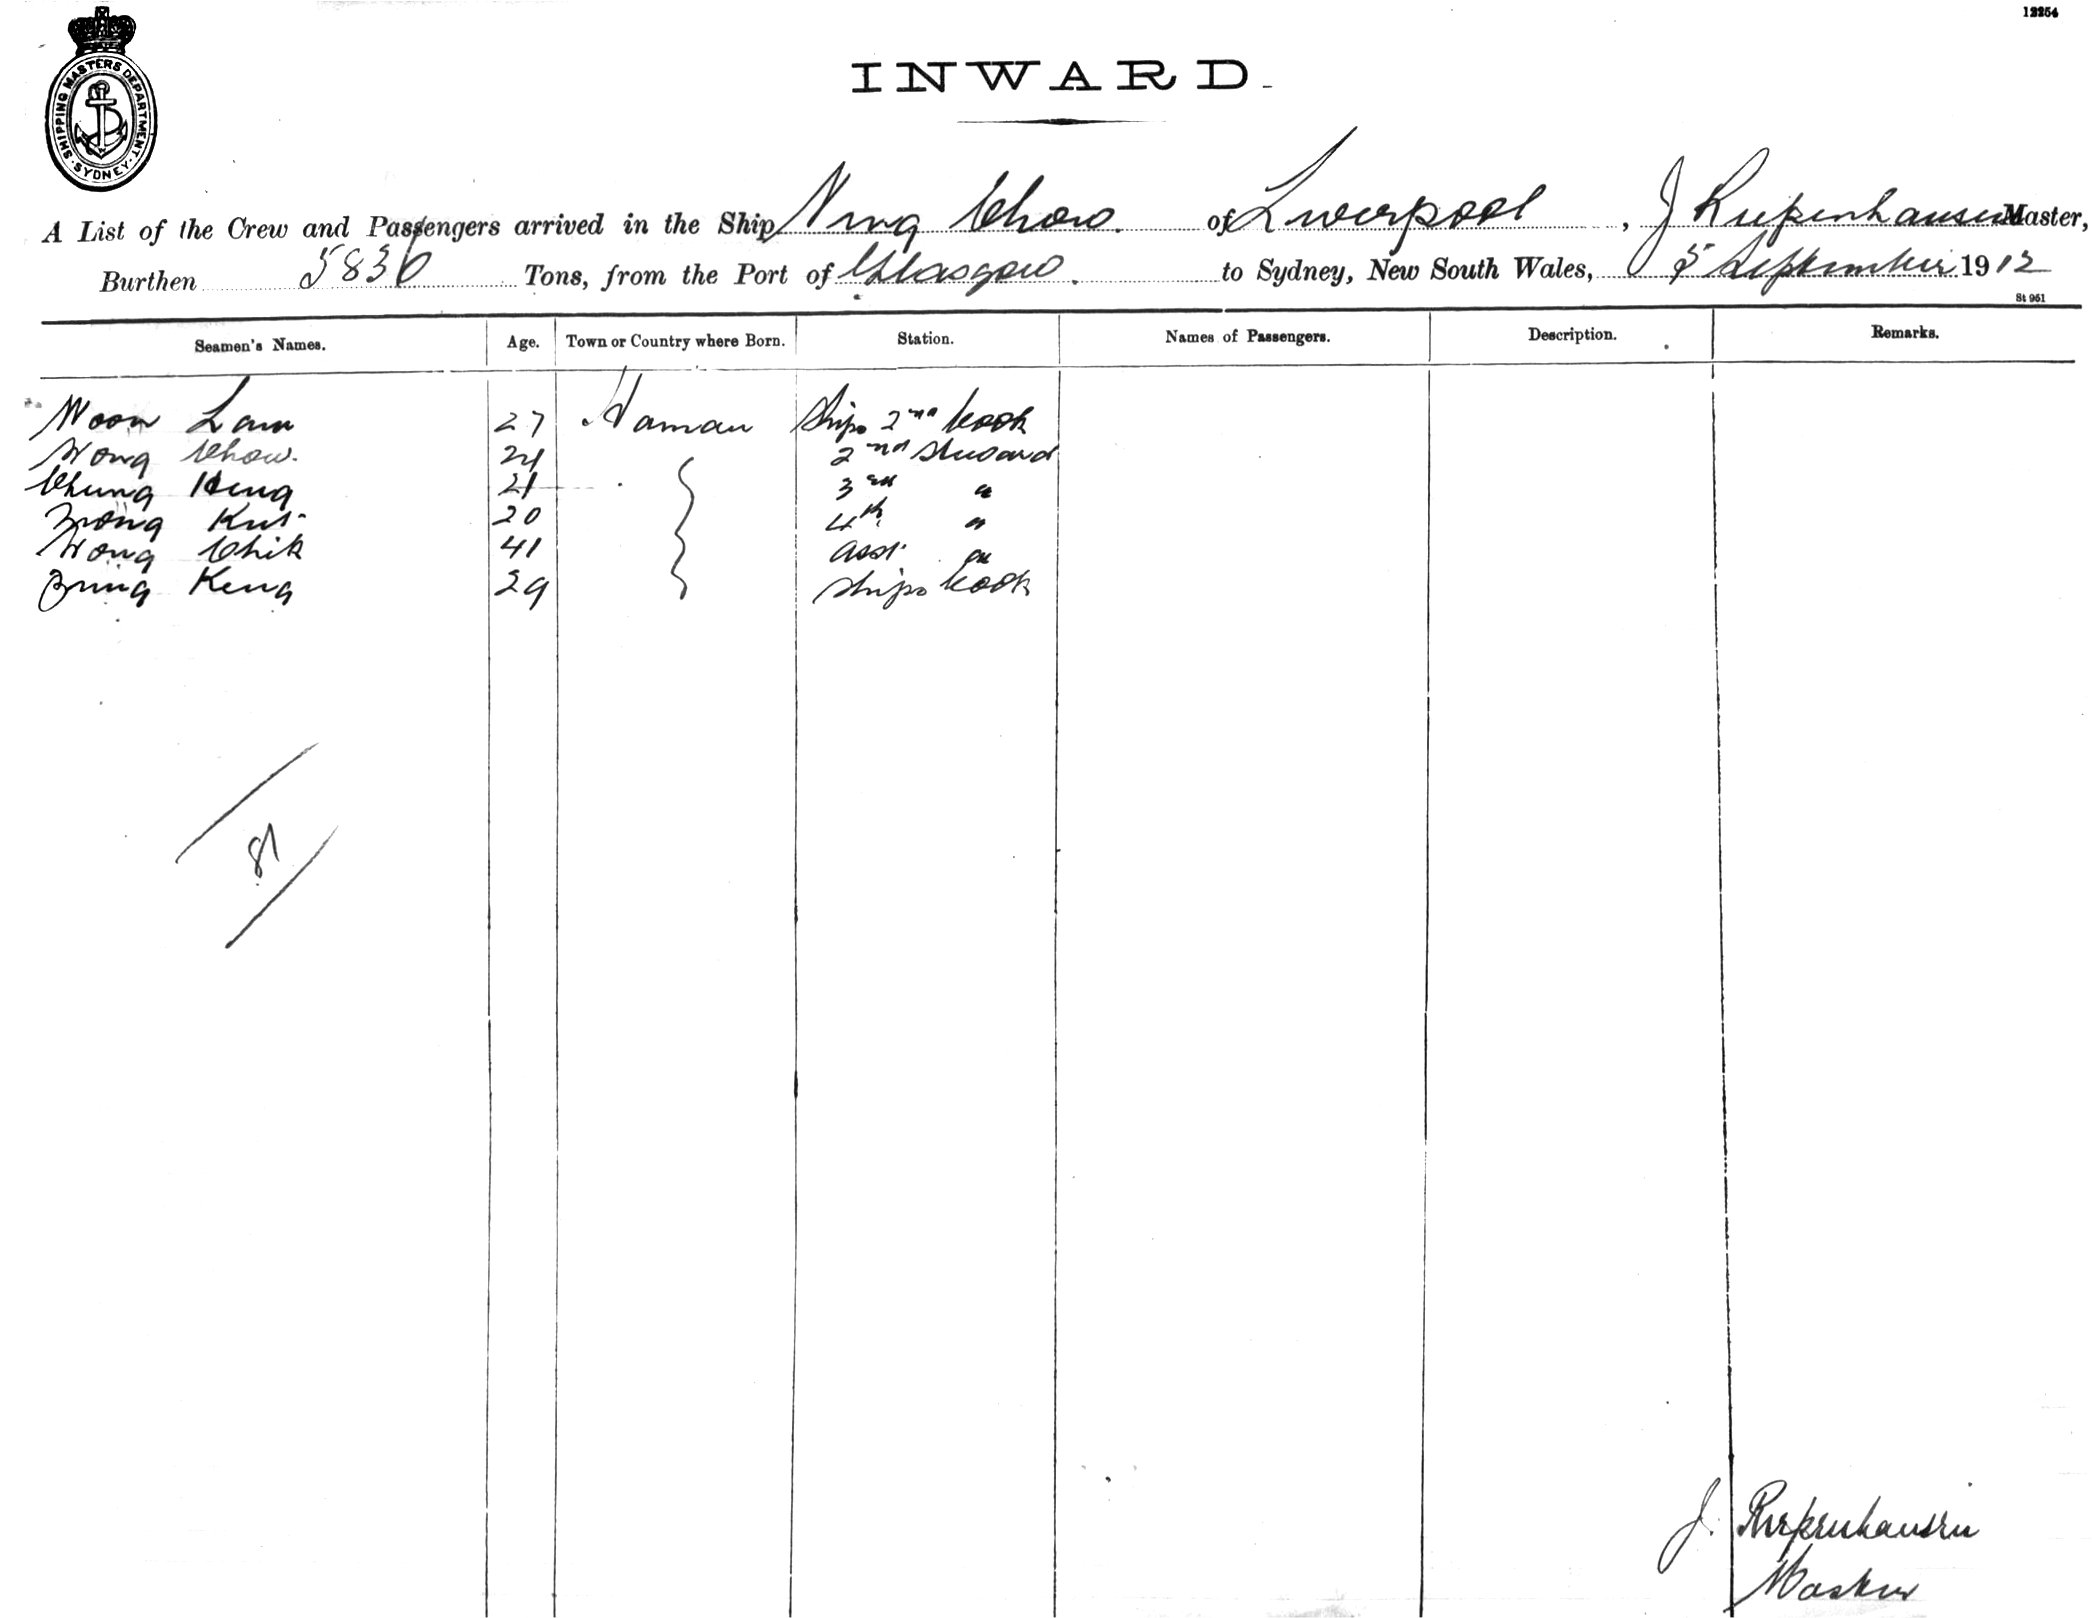 12254
SHIPPING MASTERS DEPARTMENT · SYDNEY ·
INWARD.
A List of the Crew and Passengers arrived in the Ship Ning Chow. of Liverpool, J Riepenhausen Master,
Burthen 5836 Tons, from the Port of Glasgow. to Sydney, New South Wales, 5 September 1912
St 961
Seamen's Names. Age. Town or Country where Born. Station. Names of Passengers. Description. Remarks.
Woon Lam 27 Hainan Ships 2nd Cook
Wong Chow. 24 2nd Steward
Chung Heng 21 3rd "
Wong 20 4th "
Wong Chik 41 asst. "
Keng 29 Ships Cook
81
J. Riepenhausen
Master